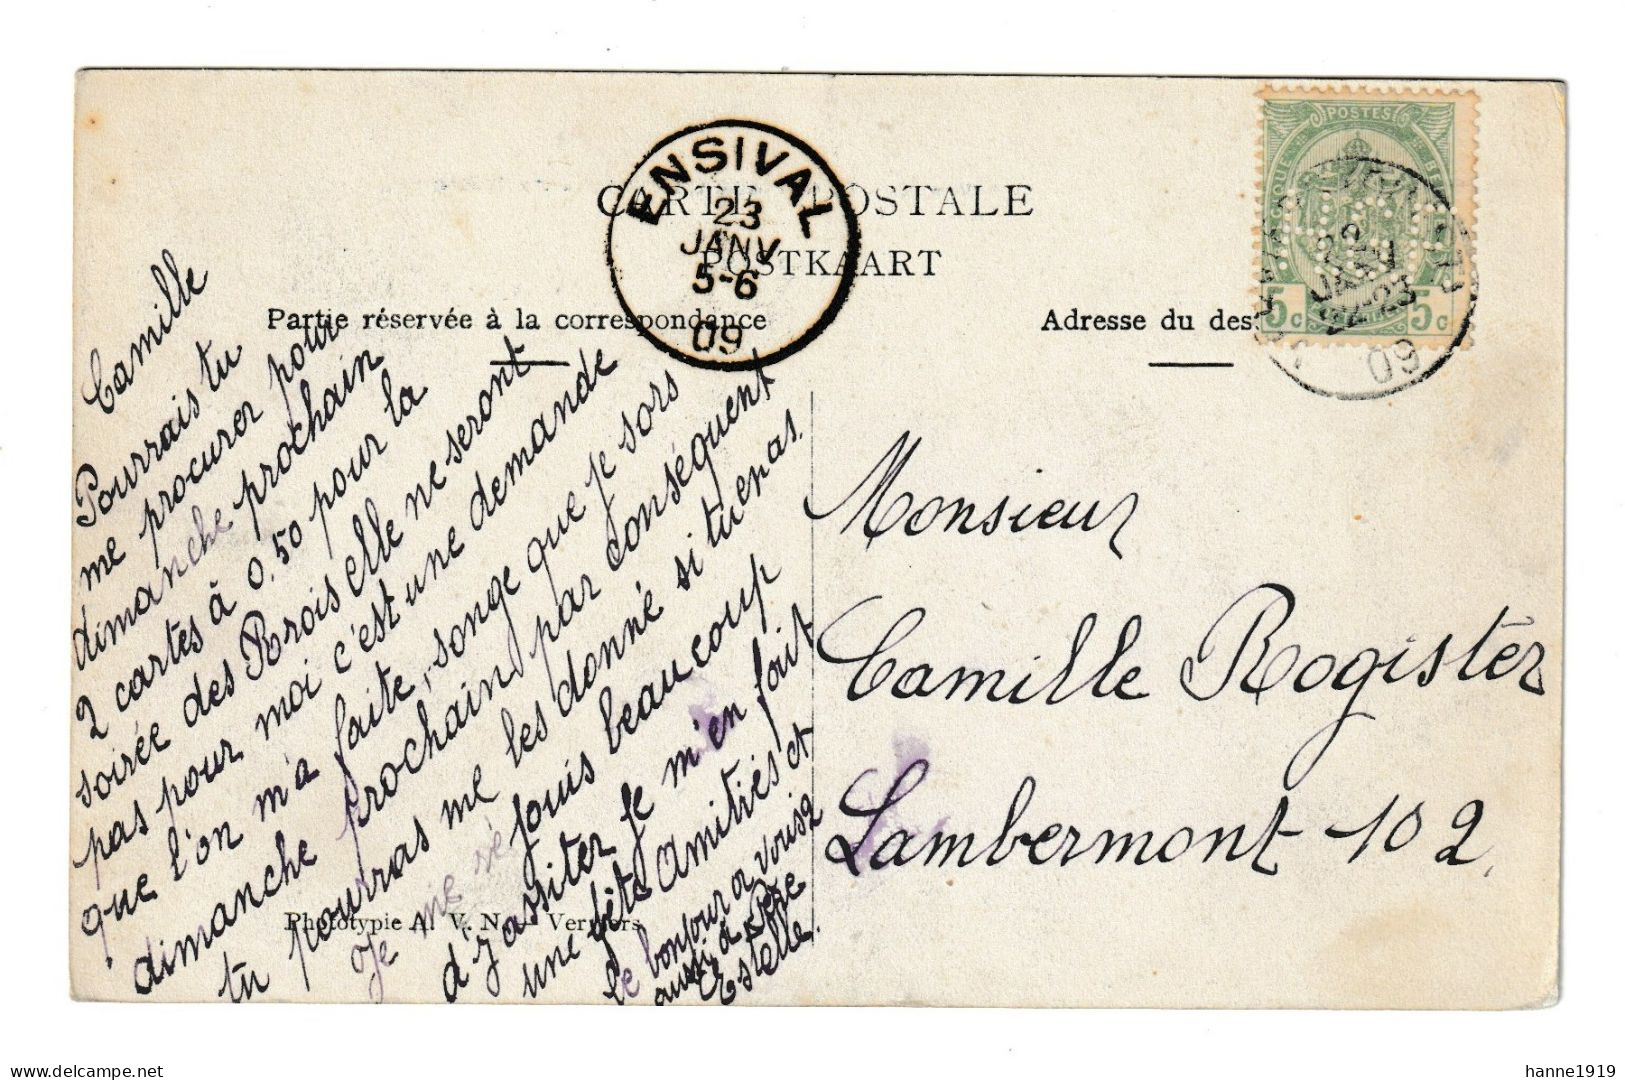 CARTE POSTALE
POSTKAART
Partie réservée à la correspondance
Adresse du des
ENSIVAL
23
JANV
5-6
09
POSTES
5c 5c
22
JANV
22-23
09
Camille
Pourrais tu
me procurer pour
dimanche prochain
2 cartes à 0.50 pour la
soirée des Rrois elle ne seront
pas pour moi c'est une demande
que l'on m'a faite, songe que je sors
dimanche prochain par conséquent
tu pourras me les donné si tu en as.
Je me ré jouis beaucoup
d'y assiter je m'en fait
une fête Amitiés et
le bonjour
aussi à père
Estelle.
Monsieur
Camille Rogister
Lambermont 102.
Phototypie A. V. N. Verviers
delcampe.net
hanne1919